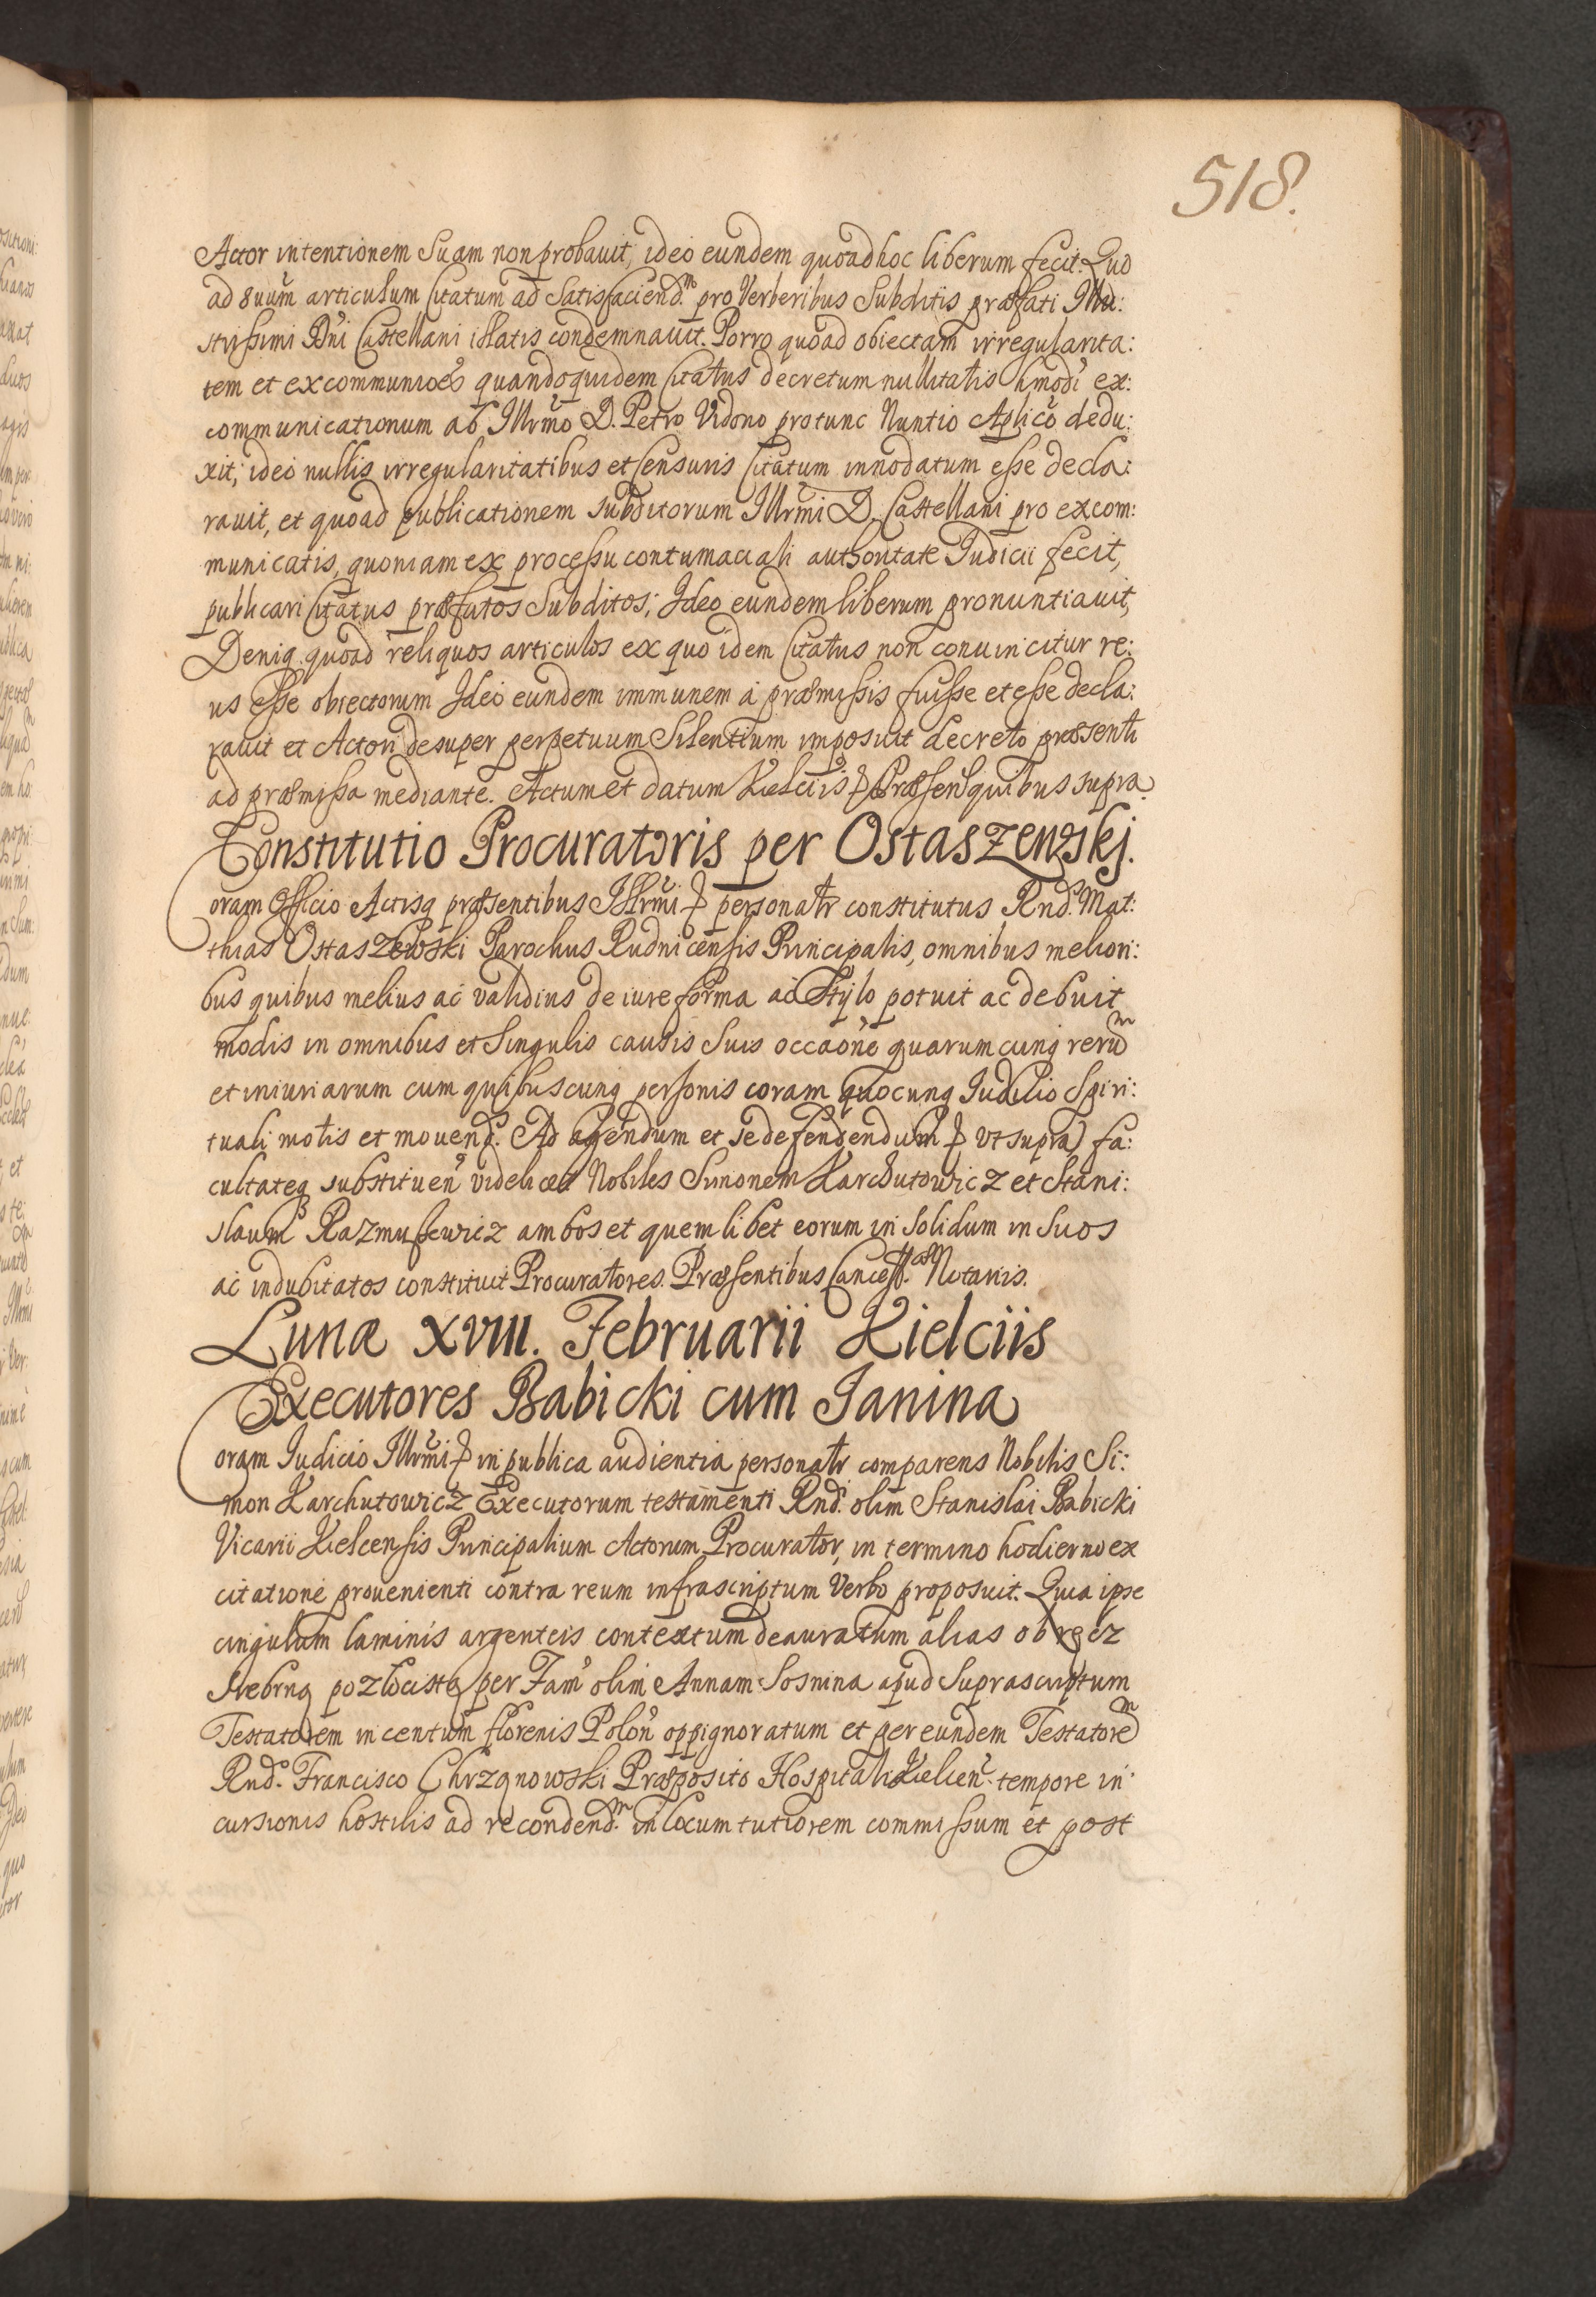 518.
Actor intentionem Suam non probauit, ideo eundem quoad hoc liberum fecit. Quo
ad 8uum articulum Citatum ad Satisfaciend.m pro Verberibus Subditis præfati Illu:
strissimi Dni Castellani illatis condemnauit. Porro quoad obiectam irregularita:
tem et excommunioēs quandoquidem Citatus decretum nullitatis hmodi ex:
communicationum ab Illrmo D. Petro Vidono protunc Nuntio Aplico dedu:
xit; ideo nullis irregularitatibus et Censuris Citatum innodatum esse decla:
rauit, et quoad publicationem subditorum Illrmi D. Castellani pro excom:
municatis, quoniam ex processu contumaciali authoritate Iudicii fecit,
publicari Citatus præfatos Subditos; Ideo eundem liberum pronuntiauit,
Deniq quoad reliquos articulos ex quo idem Citatus non conuincitur re:
us esse obiectorum Ideo eundem immunem a præmissis fuisse et esse decla:
rauit et Actori desuper perpetuum Silentium imposuit decreto præsenti
ad præmissa mediante. Actum et datum Kielciis Præsen quibus supra
Constitutio Procuratoris per Ostaszewskj.
Coram Officio Actisq præsentibus Illrmi personalr constitutus Rnd.s Mat:
thias Ostaszewski Parochus Rudnicensis Principalis, omnibus meliori:
bus quibus melius ac validius de iure forma ac Stylo potuit ac debuit
modis in omnibus et Singulis causis Suis occaōne quarumcunq rerum
et iniuriarum cum quibuscunq personis coram quocunq Iudicio Spiri:
tuali motis et mouend.s Ad agendum et se defendendum vt supra) fa:
cultateq substituen videlicet Nobiles Simonem Karchutowicz et Stani:
slaum Razmusewicz ambos et quemlibet eorum in solidum in Suos
ac indubitatos constituit Procuratores. Præsentibus Cancell.æ Notariis.
Lunæ XVIII. Februarii Kielciis
Executores Babicki cum Janina
Coram Iudicio Illrmi in publica audientia personalr comparens Nobilis Si:
mon Karchutowicz Executorum testamenti Rnd.s olim Stanislai Babicki
Vicarii Kielcensis Principalium Actorum Procurator, in termino hodierno ex
citatione prouenienti contra reum infrascriptum Verbo proposuit. Quia ipse
cingulum laminis argenteis contextum deauratum alias obręcz
srebrną pozłocistą per Fam olim Annam Sosnina apud Suprascriptum
Testatorem in centum florenis Polon oppignoratum et per eundem Testatorem
Rnd.s Francisco Chrzanowski Præposito Hospitali Kielcen. tempore in:
cursionis hostilis ad recondend.m in locum tutiorem commissum et post